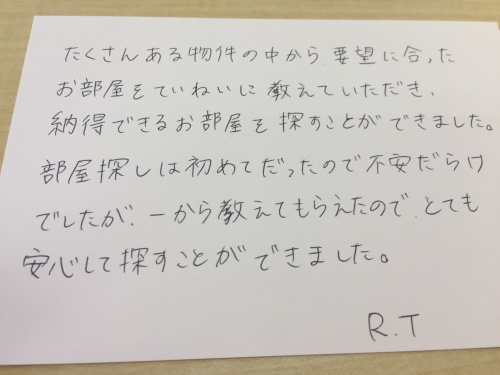 たくさんある物件の中から、要望に合った
お部屋をていねいに教えていただき、
納得できるお部屋を探すことができました。
部屋探しは初めてだったので不安だらけ
でしたが、一から教えてもらえたので、とても
安心して探すことができました。
R.T